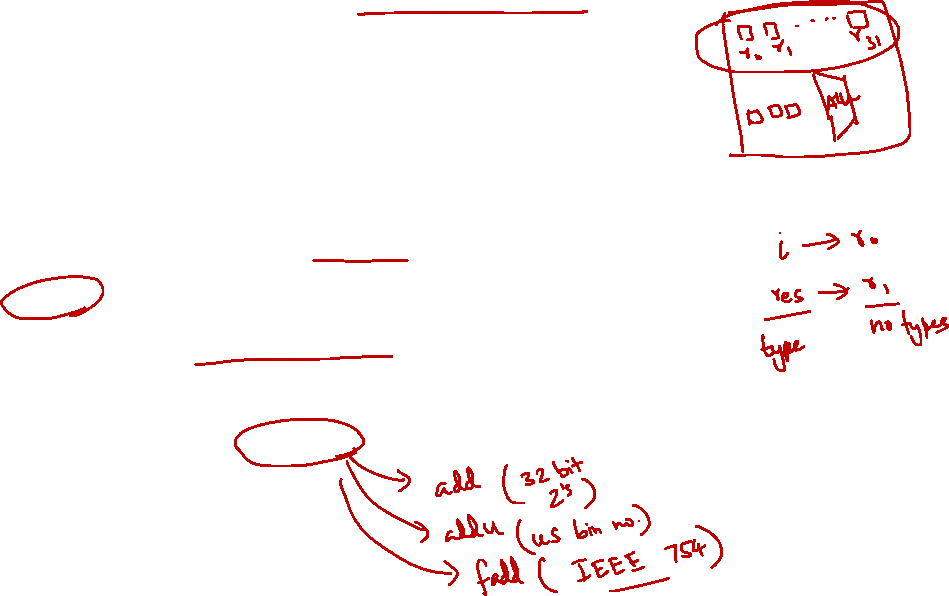 r0 r1 .... r31
ALU
i → r0
res → r1
type no types
add (32 bit 2's)
addu (us bin no.)
fadd (IEEE 754)